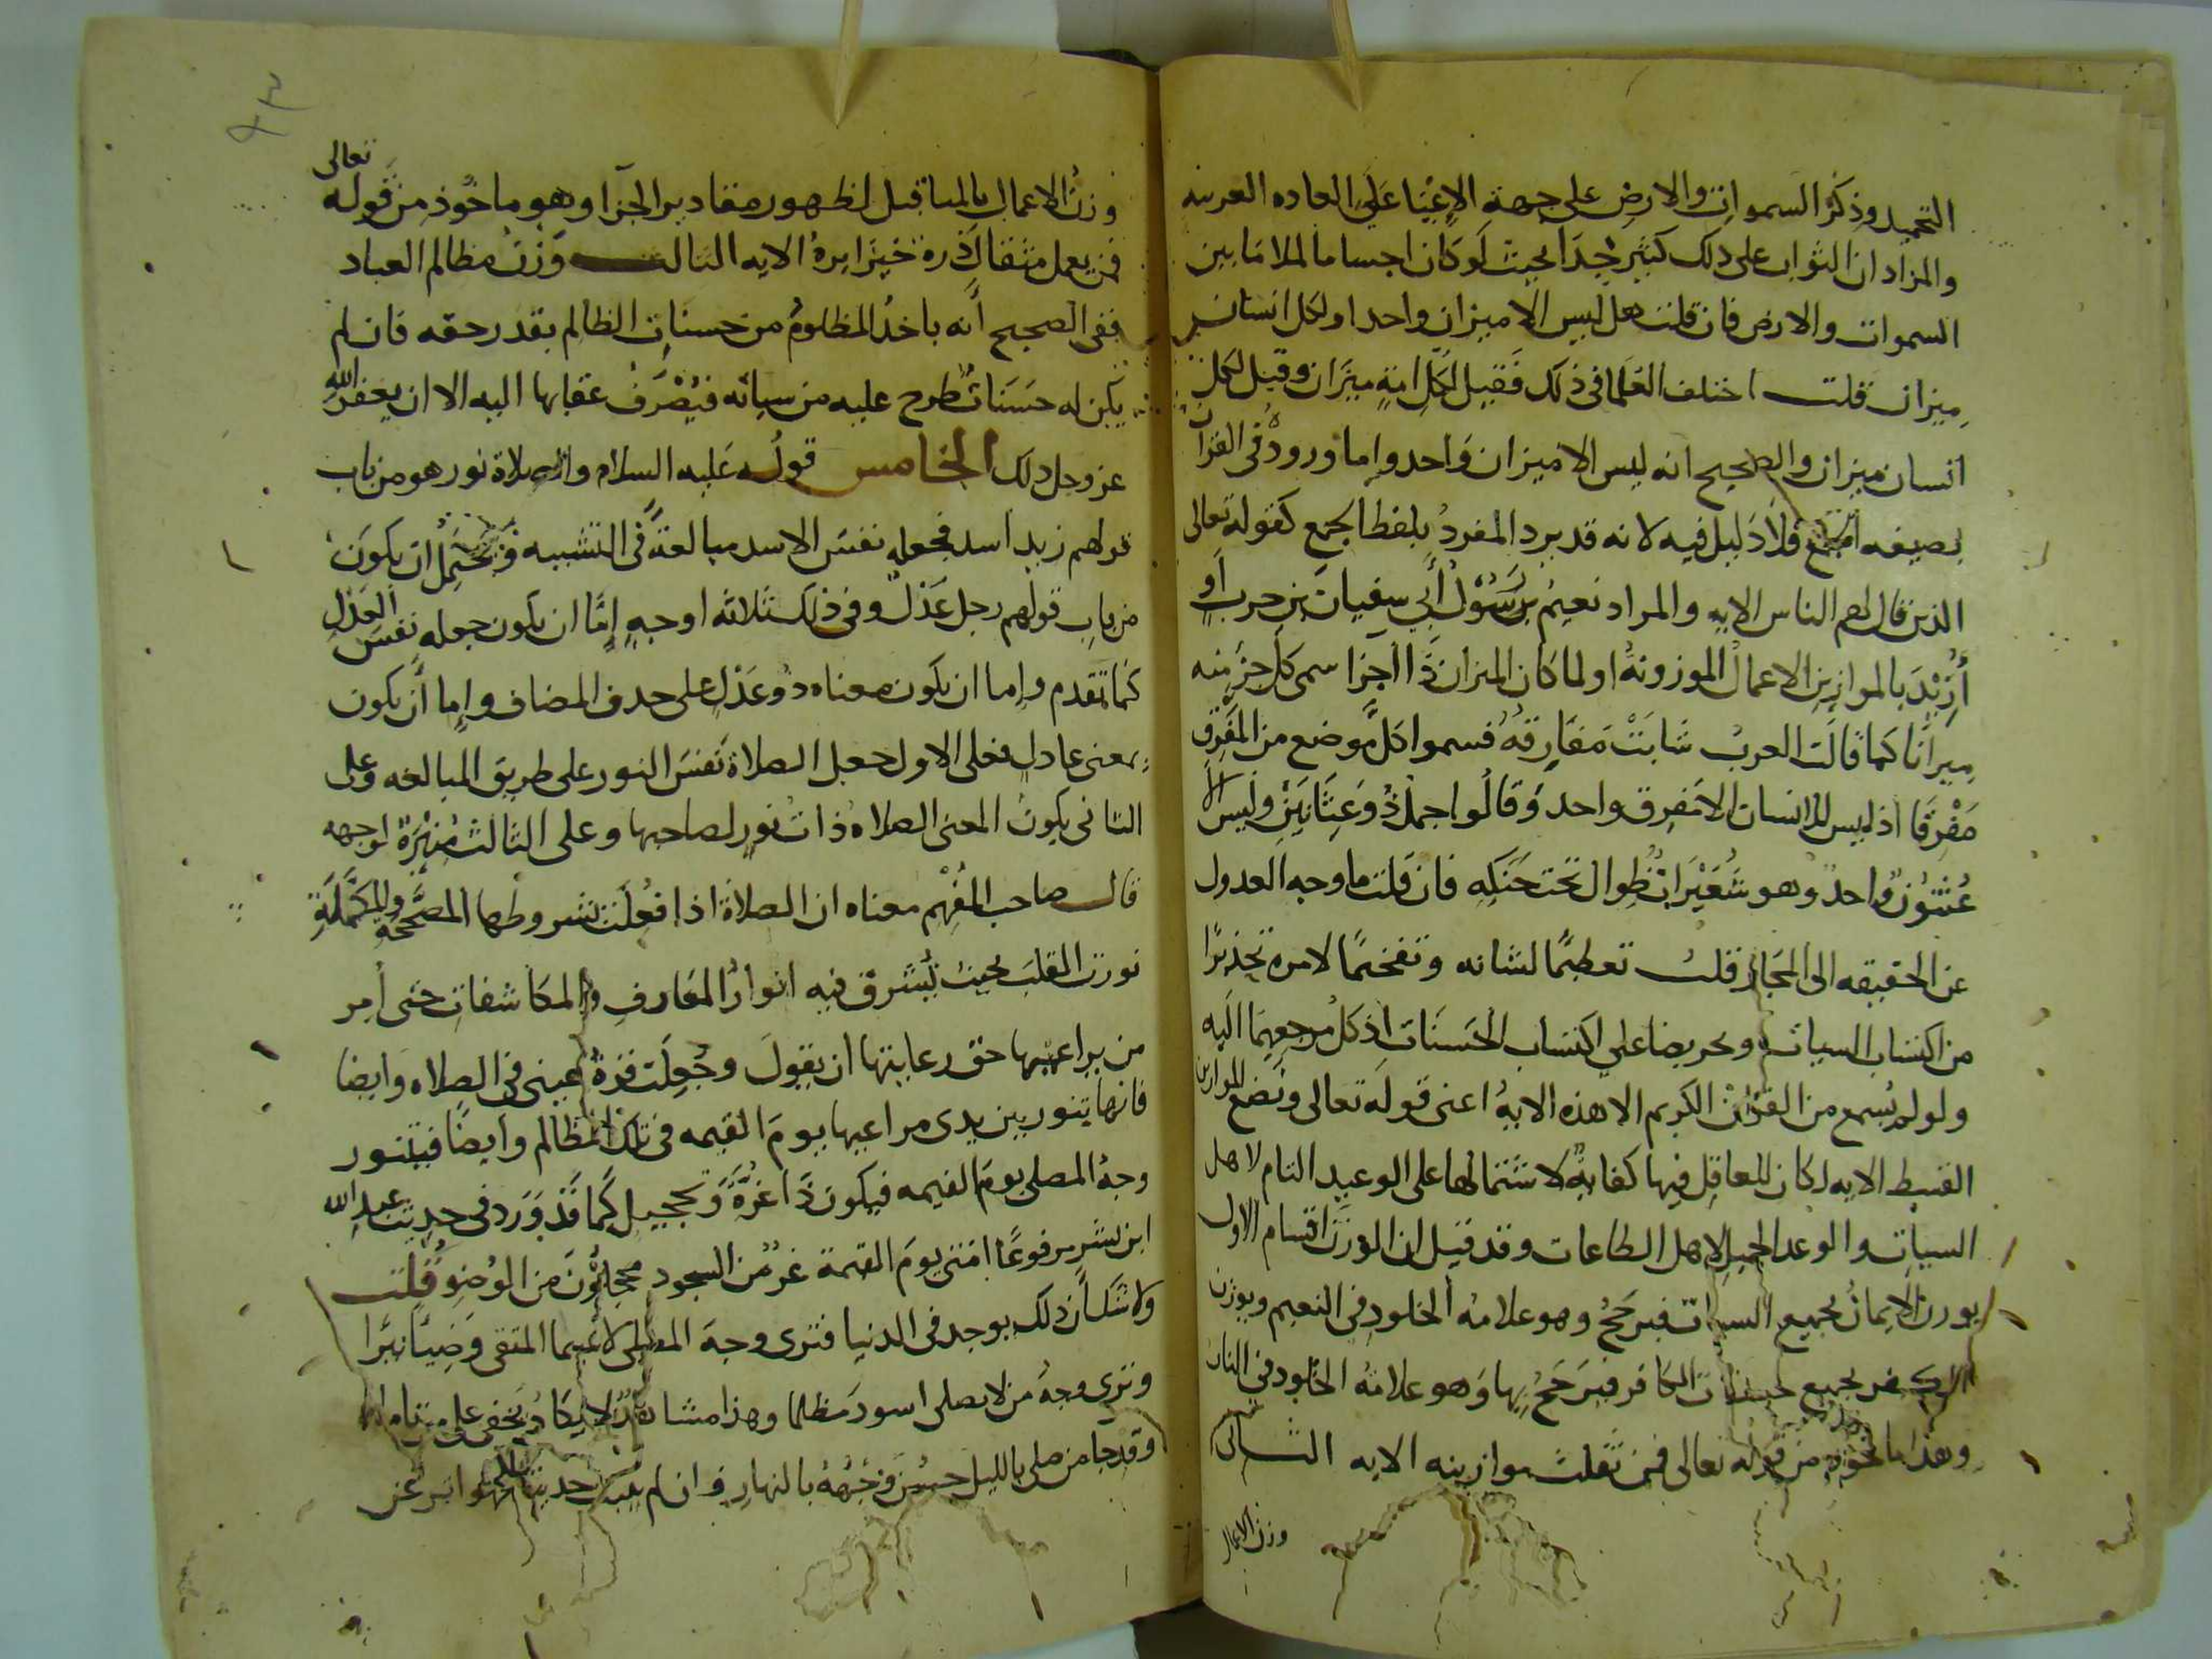 التحميد وذكر السموات والارض على جهة الاعيا على العاده العربيه
والمراد ان الثواب على ذلك كثير جدا بحيث لو كان اجساما لملا ما بين
السموات والارض فان قلت هل ليس الا ميزان واحد او لكل انسان
ميزان قلت اختلف العلما فى ذلك فقيل لكل امة ميزان وقيل لكل
انسان ميزان والصحيح انه ليس الا ميزان واحد واما وروده فى القران
بصيغه الجمع فلا دليل فيه لانه قد يرد المفرد بلفظ الجمع كقوله تعالى
الذين قال لهم الناس الايه والمراد نعيم رسول أبي سفيان بن حرب أو
أريد بالموازين الاعمال الموزونة او لما كان الميزان ذا اجزا سمى كل جزء منه
ميزانا كما قالت العرب شابت مفارقه فسموا كل موضع من المفرق
مفرقا اذ ليس للانسان الا مفرق واحد وقالوا جمل ذو عثانين وليس الا
عثنون واحد وهو شعيرات طوال تحت حنكه فان قلت ما وجه العدول
عن الحقيقه الى المجاز قلت تعظيما لشانه وتفخيما لامره تحذيرا
من اكتساب السيات وتحريضا على اكتساب الحسنات اذ كل مرجعهما اليه
ولو لم يسمع من القران الكريم الا هذه الاية اعنى قوله تعالى ونضع الموازين
القسط الايه لكان للعاقل فيها كفاية لاشتمالها على الوعيد التام لاهل
السيات والوعد الجميل لاهل الطاعات وقد قيل ان الوزن اقسام الاول
يوزن الايمان بجميع السيات فيرجح وهو علامه الخلود فى النعيم ويوزن
الكفر بجميع حسنات الكافر فيرجح بها وهو علامة الخلود فى النار
وهذا ماخوذ من قوله تعالى فمن ثقلت موازينه الايه الثانى
وزن الاعمال
وزن الاعمال بالمثاقيل لظهور مقادير الجزا وهو ماخوذ من قوله تعالى
فمن يعمل مثقال ذرة خيرا يره الايه الثالث وزن مظالم العباد
ففى الصحيح أنه ياخذ المظلوم من حسنات الظالم بقدر حقه فان لم
يكن له حسنات طرح عليه من سياته فيصرف عقابها اليه الا ان يغفر الله
عز وجل ذلك الخامس قوله عليه السلام والصلاة نور هو من باب
قولهم زيد اسد فجعله نفس الاسد مبالغة فى التشبيه فيحتمل ان يكون
من باب قولهم رجل عدل وفى ذلك ثلاثة اوجه إما ان يكون جعله نفس العدل
كما تقدم وإما ان يكون معناه ذو عدل على حذف المضاف وإما أن يكون
بمعنى عادل فعلى الاول جعل الصلاة نفس النور على طريق المبالغه وعلى
الثانى يكون المعنى الصلاه ذات نور لصاحبها وعلى الثالث منيرة لوجهه
قال صاحب المفهم معناه ان الصلاة اذا فعلت بشروطها المصححة والمكملة
نورت القلب بحيث تشرق فيه انوار المعارف والمكاشفات حتى أمر
من يراعيها حق رعايتها ان يقول وجعلت قرة عينى فى الصلاه وايضا
فانها تنور بين يدى مراعيها يوم القيمه فى تلك الظالم وايضا فيتنور
وجه المصلى يوم القيمه فيكون ذا غرة وتحجيل كما قد ورد فى حديث عبد الله
ابن بشر مرفوعا امتى يوم القيمة غر من السجود محجلون من الوضوء قلت
ولا شك أن ذلك يوجد فى الدنيا فترى وجه المصلى لا سيما المتقى وضيا نيرا
وترى وجه من لا يصلى اسود مظلما وهذا مشاهد لا يكاد يخفى على متامله
وقد جا من صلى بالليل حسن وجهه بالنهار وان لم يكن حديثا